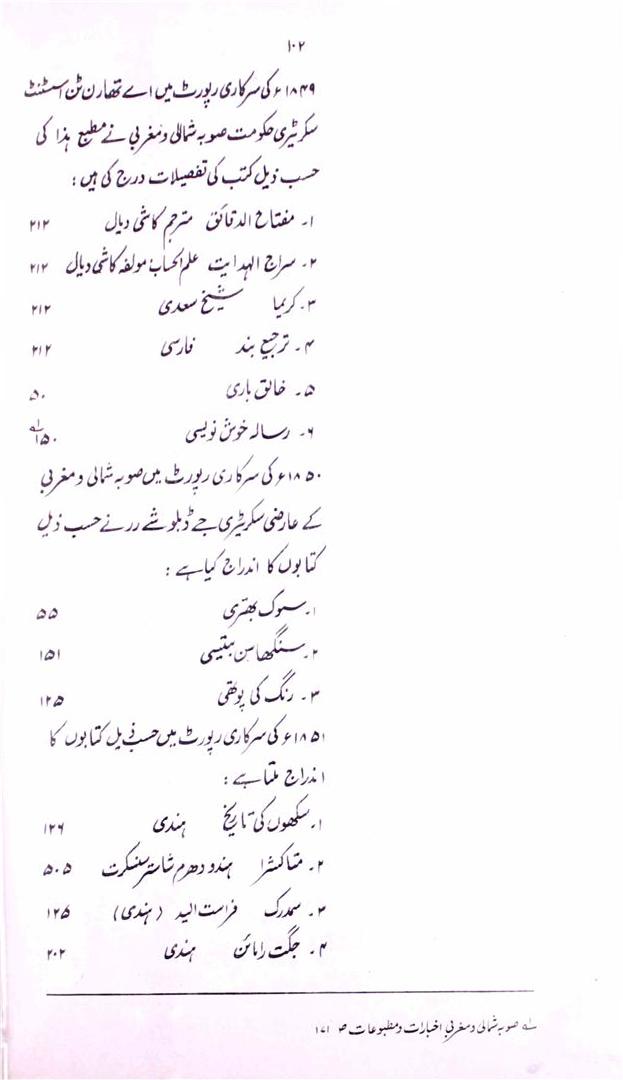 ۱۰۲
۱۸۴۹ء کی سرکاری رپورٹ میں اے تھارن ٹن اسسٹنٹ
سکریٹری حکومت صوبہ شمالی و مغربی نے مطبع ہذا کی
حسب ذیل کتب کی تفصیلات درج کی ہیں :
۱۔ مفتاح الدقائق مترجم کاشی دیال ۲۱۲
۲۔ سراج الہدایت علم الحساب مولفہ کاشی دیال ۲۱۲
۳۔ کریما شیخ سعدی ۲۱۲
۴۔ ترجیع بند فارسی ۲۱۲
۵۔ خالق باری ۵۰
۶۔ رسالہ خوش نویسی ۱۵۰ لہ
۱۸۵۰ء کی سرکاری رپورٹ میں صوبہ شمالی و مغربی
کے عارضی سکریٹری جے ڈبلو شے رر نے حسب ذیل
کتابوں کا اندراج کیا ہے :
۱۔ سوک بھتری ۵۵
۲۔ سنگھاسن بتیسی ۱۵۱
۳۔ رنگ کی پوتھی ۱۲۵
۱۸۵۱ء کی سرکاری رپورٹ میں حسب ذیل کتابوں کا
اندراج ملتا ہے :
۱۔ سکھوں کی تاریخ ہندی ۱۲۶
۲۔ متاکشرا ہندو دھرم شاستر سنسکرت ۵۰۵
۳۔ سمدرک فراست الید (ہندی) ۱۲۵
۴۔ جگت رامائن ہندی ۲۰۲
لہ صوبہ شمالی و مغربی اخبارات و مطبوعات ص ۱۷۱